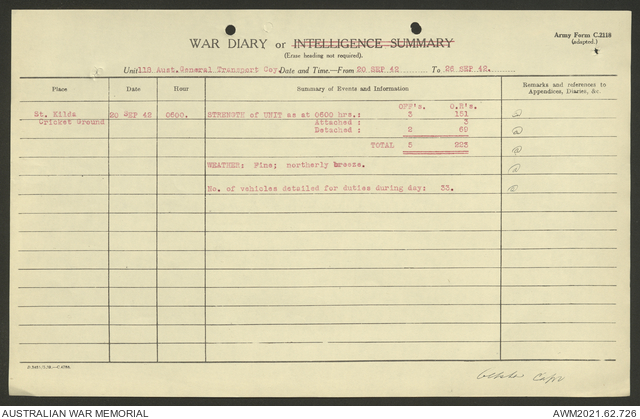 Army Form C.2118
(adapted.)
WAR DIARY or INTELLIGENCE SUMMARY
(Erase heading not required).
Unit 118 Aust. General Transport Coy. Date and Time.—From 20 SEP 42 To 26 SEP 42.
Place Date Hour Summary of Events and Information Remarks and references to Appendices, Diaries, &c.
OFF's. O.R's.
St. Kilda 20 SEP 42 0600. STRENGTH of UNIT as at 0600 hrs.: 3 151
Cricket Ground Attached : 3
Detached : 2 69
TOTAL 5 223
WEATHER: Fine; northerly breeze.
No. of vehicles detailed for duties during day: 33.
Capt
AUSTRALIAN WAR MEMORIAL AWM2021.62.726